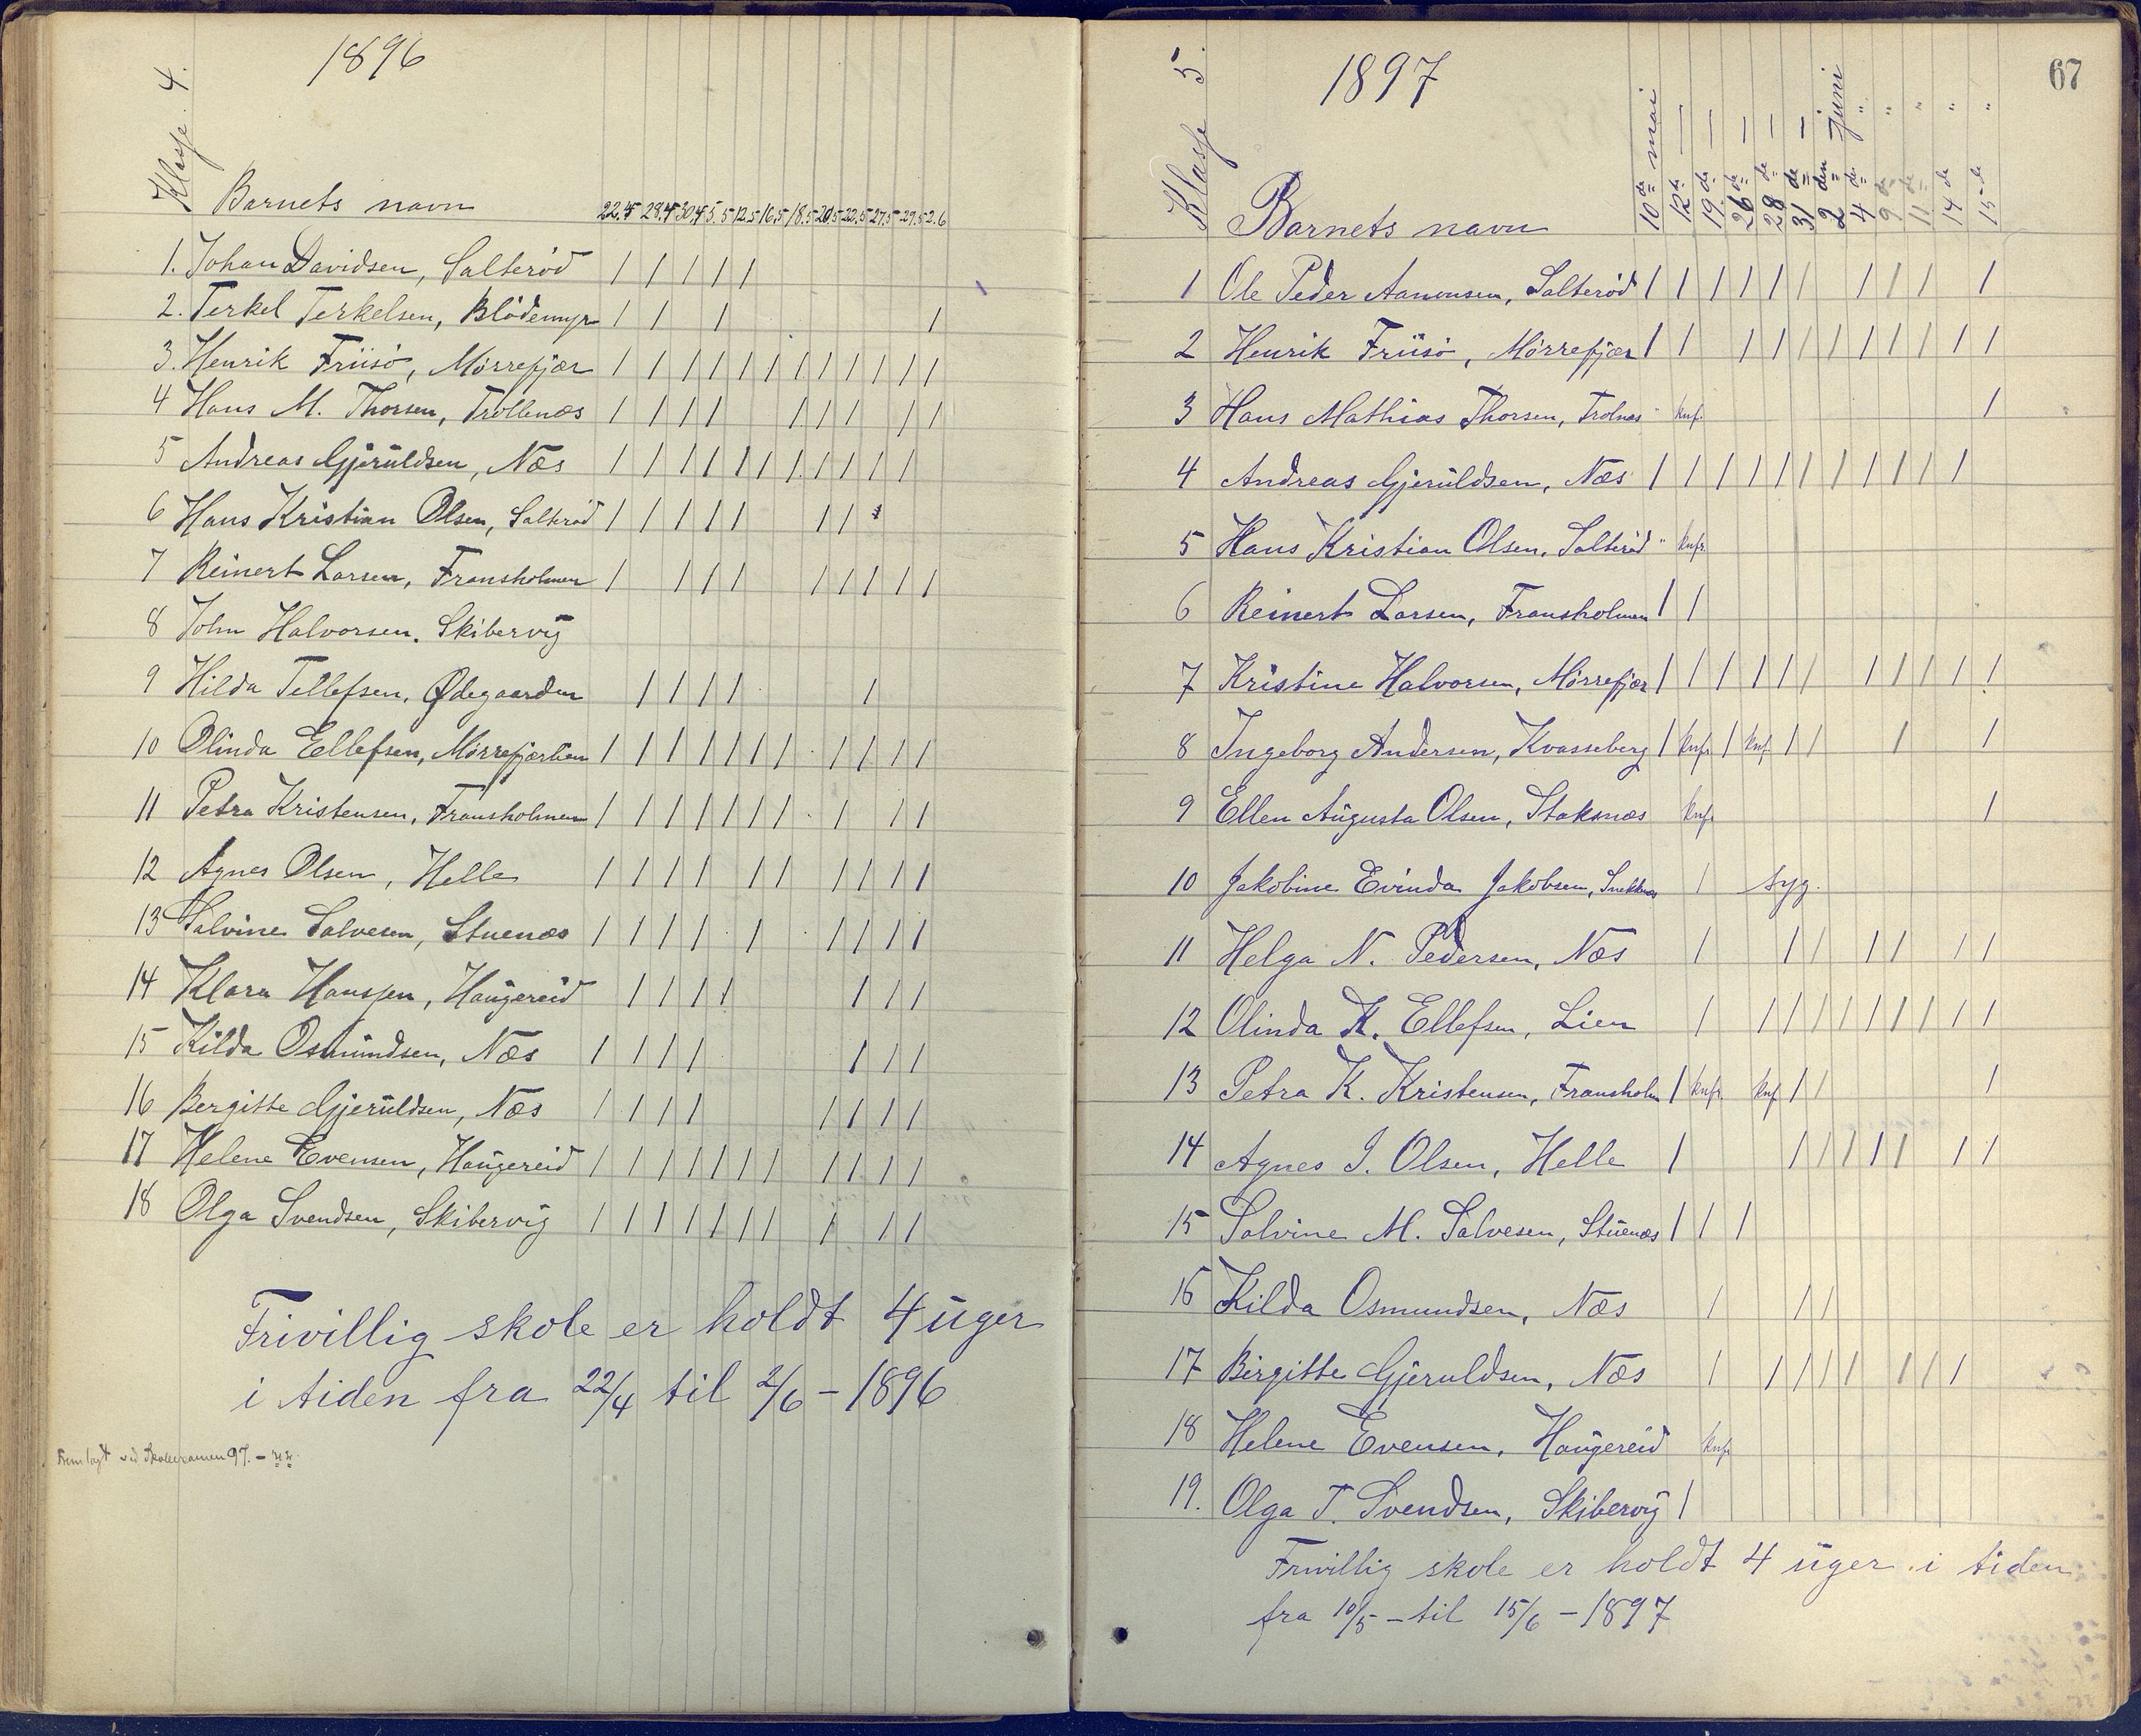 1896
Klasse 4.
Barnets navn 22.4 28.4 30.4 5.5 12.5 16.5 18.5 20.5 22.5 27.5 29.5 2.6
1. Johan Davidsen, Salterød / / / / /
2. Terkel Terkelsen, Blödemyr / / / /
3. Henrik Friisö, Mörrefjær / / / / / / / / / / / /
4 Hans M. Thorsen, Trollenæs / / / / / / / / /
5 Andreas Gjeruldsen, Næs / / / / / / / / / / /
6 Hans Kristian Olsen, Salterød / / / / / / /
7 Reinert Larsen, Fransholmen / / / / / / / / /
8 John Halvorsen. Skibervig
9 Hilda Tellefsen, Ødegaarden / / / / /
10 Olinda Ellefsen, Mörrefjærlien / / / / / / / / / / /
11 Petra Kristensen, Fransholmen / / / / / / / / / /
12 Agnes Olsen, Helle / / / / / / / / / /
13 Salvine Salvesen, Stuenæs / / / / / / / / /
14 Klara Hanssen, Haugereid / / / / / / /
15 Kilda Osmundsen, Næs / / / / / / /
16 Bergitte Gjeruldsen, Næs / / / / / / / /
17 Helene Evensen, Haugereid / / / / / / / / / / /
18 Olga Svendsen, Skibervig / / / / / / / / / /
Frivillig skole er holdt 4 uger
i tiden fra 22/4 til 2/6 – 1896
Fremlagt ved Skoleexamen 97. –
67
1897
Klasse 5.
Barnets navn 10de mai 12te — 19de — 26de — 28de — 31da — 2den Juni 4de " 9de " 11te " 14de " 15de "
1 Ole Peder Aanonsen, Salterød / / / / / / / / / /
2 Henrik Friisö, Mörrefjær / / / / / / / / / / /
3 Hans Mathias Thorsen, Trolnæs " knf. /
4 Andreas Gjeruldsen, Næs / / / / / / / / / / /
5 Hans Kristian Olsen, Salteröd " knfr.
6 Reinert Larsen, Fransholmen / /
7 Kristine Halvorsen, Mörrefjær / / / / / / / / / / /
8 Ingeborg Andersen, Kvasseberg / knfr / knf. / / / /
9 Ellen Augusta Olsen, Staksnæs knfr /
10 Jakobine Evinda Jakobsen, Snekkenes / syg.
11 Helga N. Pedersen, Næs / / / / / / /
12 Olinda K. Ellefsen, Lien / / / / / / / / / /
13 Petra K. Kristensen, Fransholm / knfr. knf / / /
14 Agnes I. Olsen, Helle / / / / / / / /
15 Salvine M. Salvesen, Stuenæs / / /
16 Kilda Osmundsen, Næs / / /
17 Birgitte Gjeruldsen, Næs / / / / / / / / /
18 Helene Evensen, Haugereid knfr
19. Olga T. Svendsen, Skibervig /
Frivillig skole er holdt 4 uger i tiden
fra 10/5 – til 15/6 – 1897